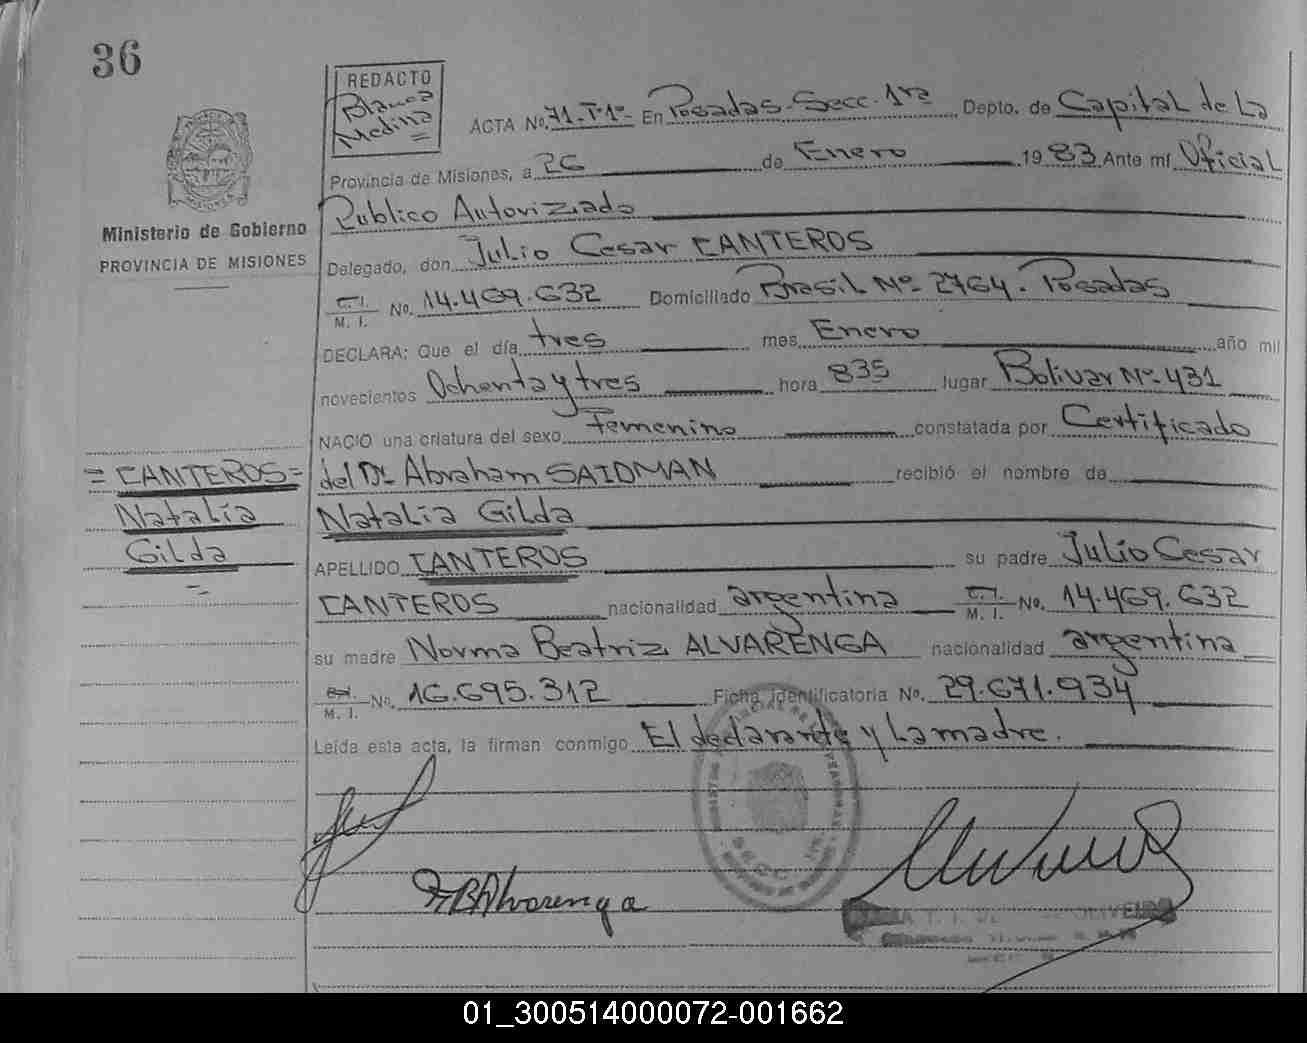 36
REDACTO
Blanca
Medina
ACTA No. 71-Tº1º- En Posadas-Secc. 1ra Depto. de Capital de La
Provincia de Misiones, a 26 de Enero 1983. Ante mí Oficial
Publico Autorizado
Ministerio de Gobierno
PROVINCIA DE MISIONES
Delegado, don Julio Cesar CANTEROS
C.I.
M. I. No. 14.469.632 Domiciliado Brasil Nº 2764. Posadas
DECLARA: Que el día tres mes Enero año mil
novecientos Ochenta y tres hora 835 lugar Bolivar Nº-431
NACIO una criatura del sexo Femenino constatada por Certificado
del Dr. Abraham SAIDMAN recibió el nombre de
=CANTEROS=
Natalia
Gilda
Natalia Gilda
APELLIDO CANTEROS su padre Julio Cesar
CANTEROS nacionalidad argentina C.I.
M. I. No. 14.469.632
su madre Norma Beatriz ALVARENGA nacionalidad argentina
M. I. No. 16.695.312 Ficha identificatoria No. 29.671.934
Leída esta acta, la firman conmigo El declarante y La madre.
NBAlvarenga
01_300514000072-001662